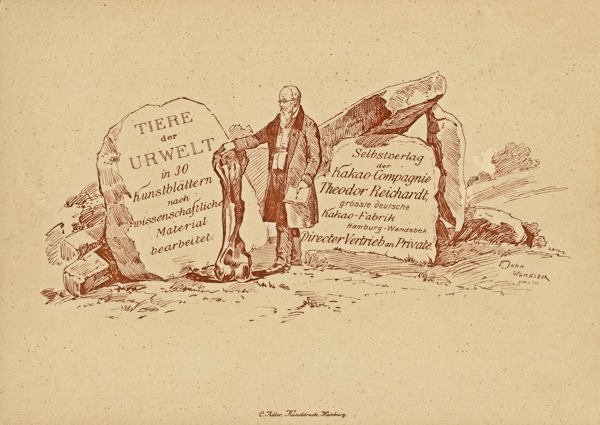 TIERE
der
URWELT
in 30
Kunstblättern
nach
wissenschaftliche
Material
bearbeitet.
Selbstverlag
der
Kakao-Compagnie
Theodor Reichardt,
grösste deutsche
Kakao-Fabrik
Hamburg-Wandsbek
Directer Vertrieb an Private.
F. John
WANDSBEK
C. Adler, Kunstdruck, Hamburg.